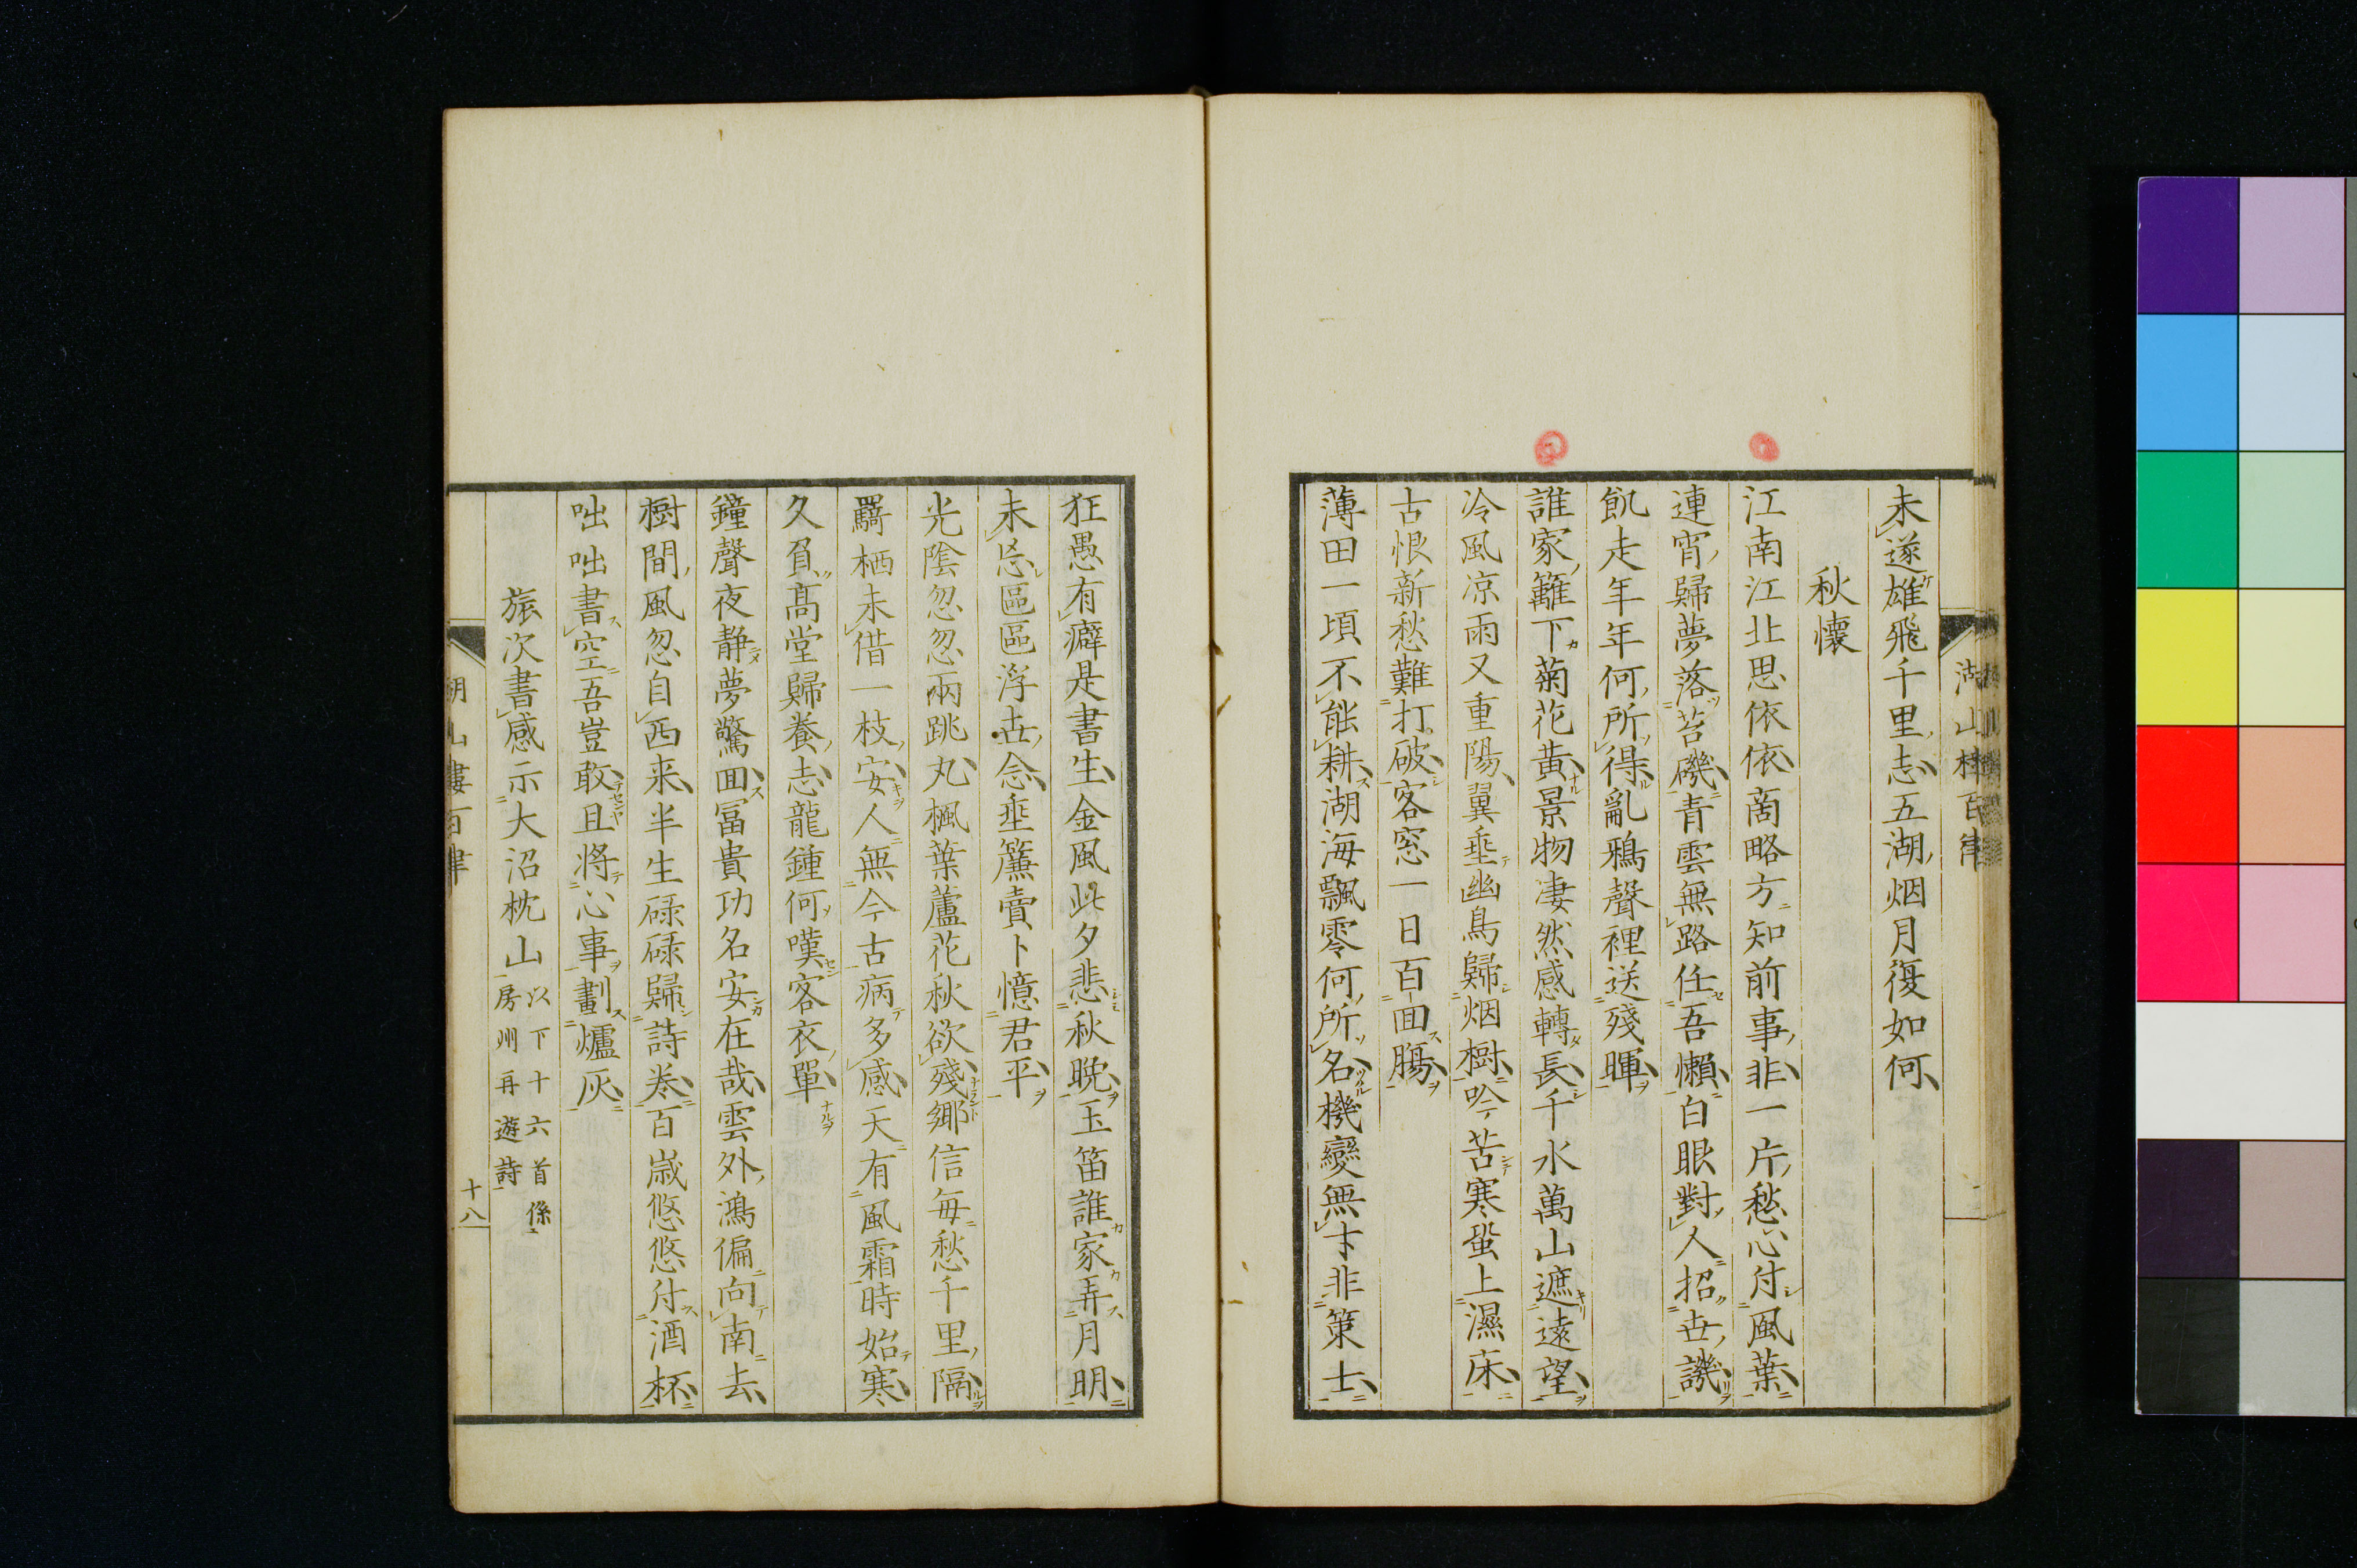 未遂雄飛千里志五湖烟月復如何
秋懷
江南江北思依依商略方知前事非一片愁心付風葉
連宵歸夢落苔磯青雲無路任吾懶白眼對人招世譏
飢走年年何所得亂鴉聲裡送殘暉
誰家籬下菊花黃景物凄然感轉長千水萬山遮遠望
冷風凉雨又重陽翼垂幽鳥歸烟樹吟苦寒蛩上濕床
古恨新愁難打破客窓一日百回腸
薄田一頃不能耕湖海飄零何所名機變無才非策士
狂愚有癖是書生金風此夕悲秋晩玉笛誰家弄月明
未忘區區浮世念垂簾賣卜憶君平
光陰忽忽兩跳丸楓葉蘆花秋欲殘鄉信每愁千里隔
羈栖未借一枝安人無今古病多感天有風霜時始寒
久負高堂歸養志龍鍾何嘆客衣單
鐘聲夜靜夢驚回冨貴功名安在哉雲外鴻偏向南去
樹間風忽自西来半生碌碌歸詩卷百歳悠悠付酒杯
咄咄書空吾豈敢且將心事劃爐灰
旅次書感示大沼枕山以下十六首係房州再遊詩
湖山樓百律
十八